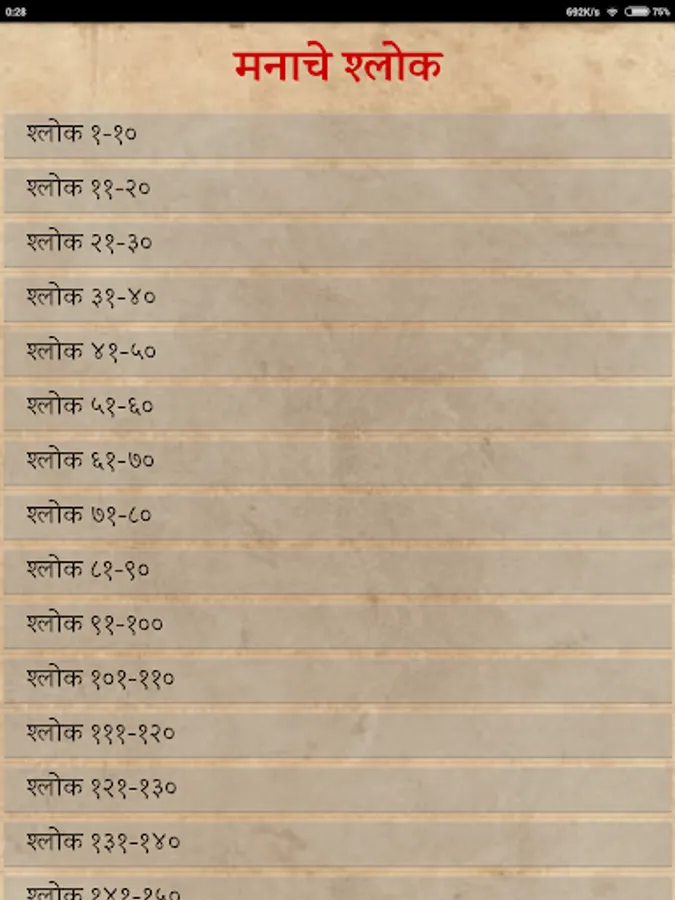 0:28 692K/s 75%
मनाचे श्लोक
श्लोक १-१०
श्लोक ११-२०
श्लोक २१-३०
श्लोक ३१-४०
श्लोक ४१-५०
श्लोक ५१-६०
श्लोक ६१-७०
श्लोक ७१-८०
श्लोक ८१-९०
श्लोक ९१-१००
श्लोक १०१-११०
श्लोक १११-१२०
श्लोक १२१-१३०
श्लोक १३१-१४०
श्लोक १४१-१५०